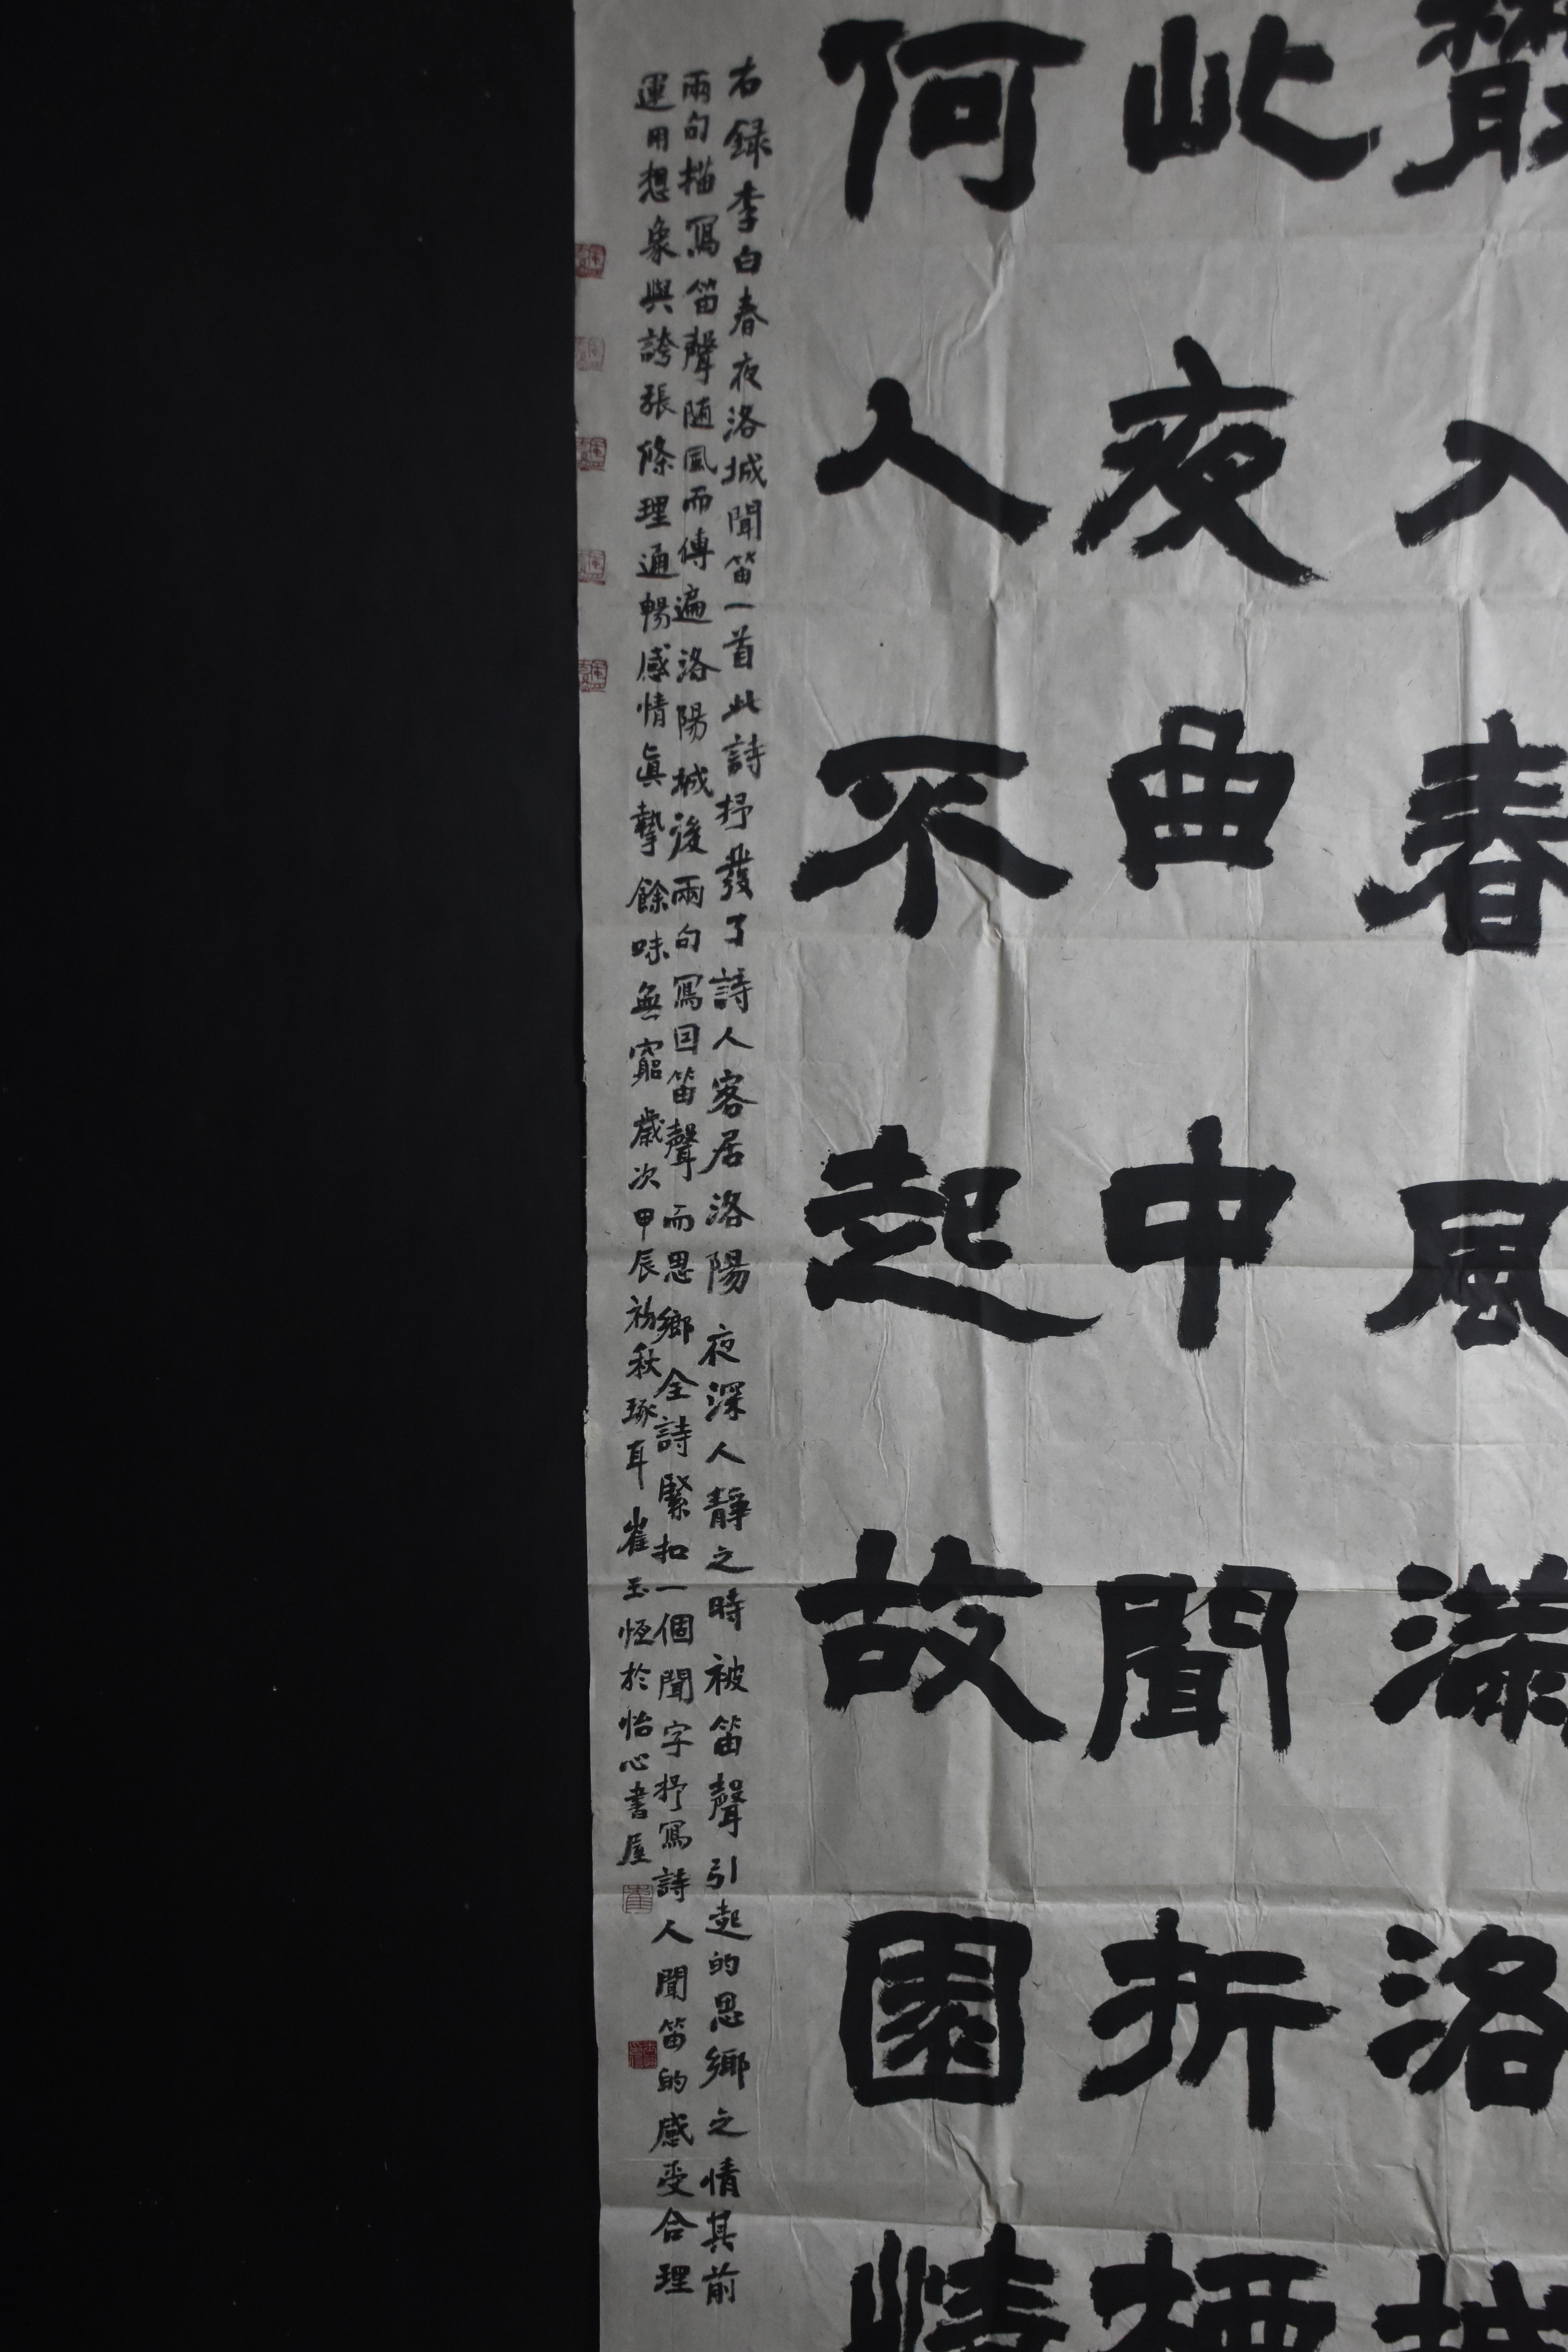 散入春風滿洛城
此夜曲中聞折柳
何人不起故園情
右録李白春夜洛城聞笛一首此詩抒發了詩人客居洛陽夜深人靜之時被笛聲引起的思鄉之情其前
兩句描寫笛聲随風而傳遍洛陽城後兩句寫因笛聲而思鄉全詩緊扣一個聞字抒寫詩人聞笛的感受合理
運用想象與誇張條理通暢感情眞摯餘味無窮歲次甲辰初秋琢耳崔玉恆於怡心書屋